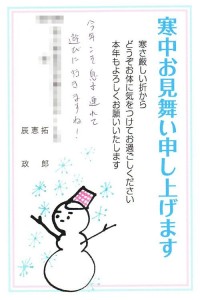 寒中お見舞い申し上げます
寒さ厳しい折から
どうぞお体に気をつけてお過ごしください
本年もよろしくお願いいたします
今年こそ息子連れて
遊びに行きますね!
拓郎
恵
辰政